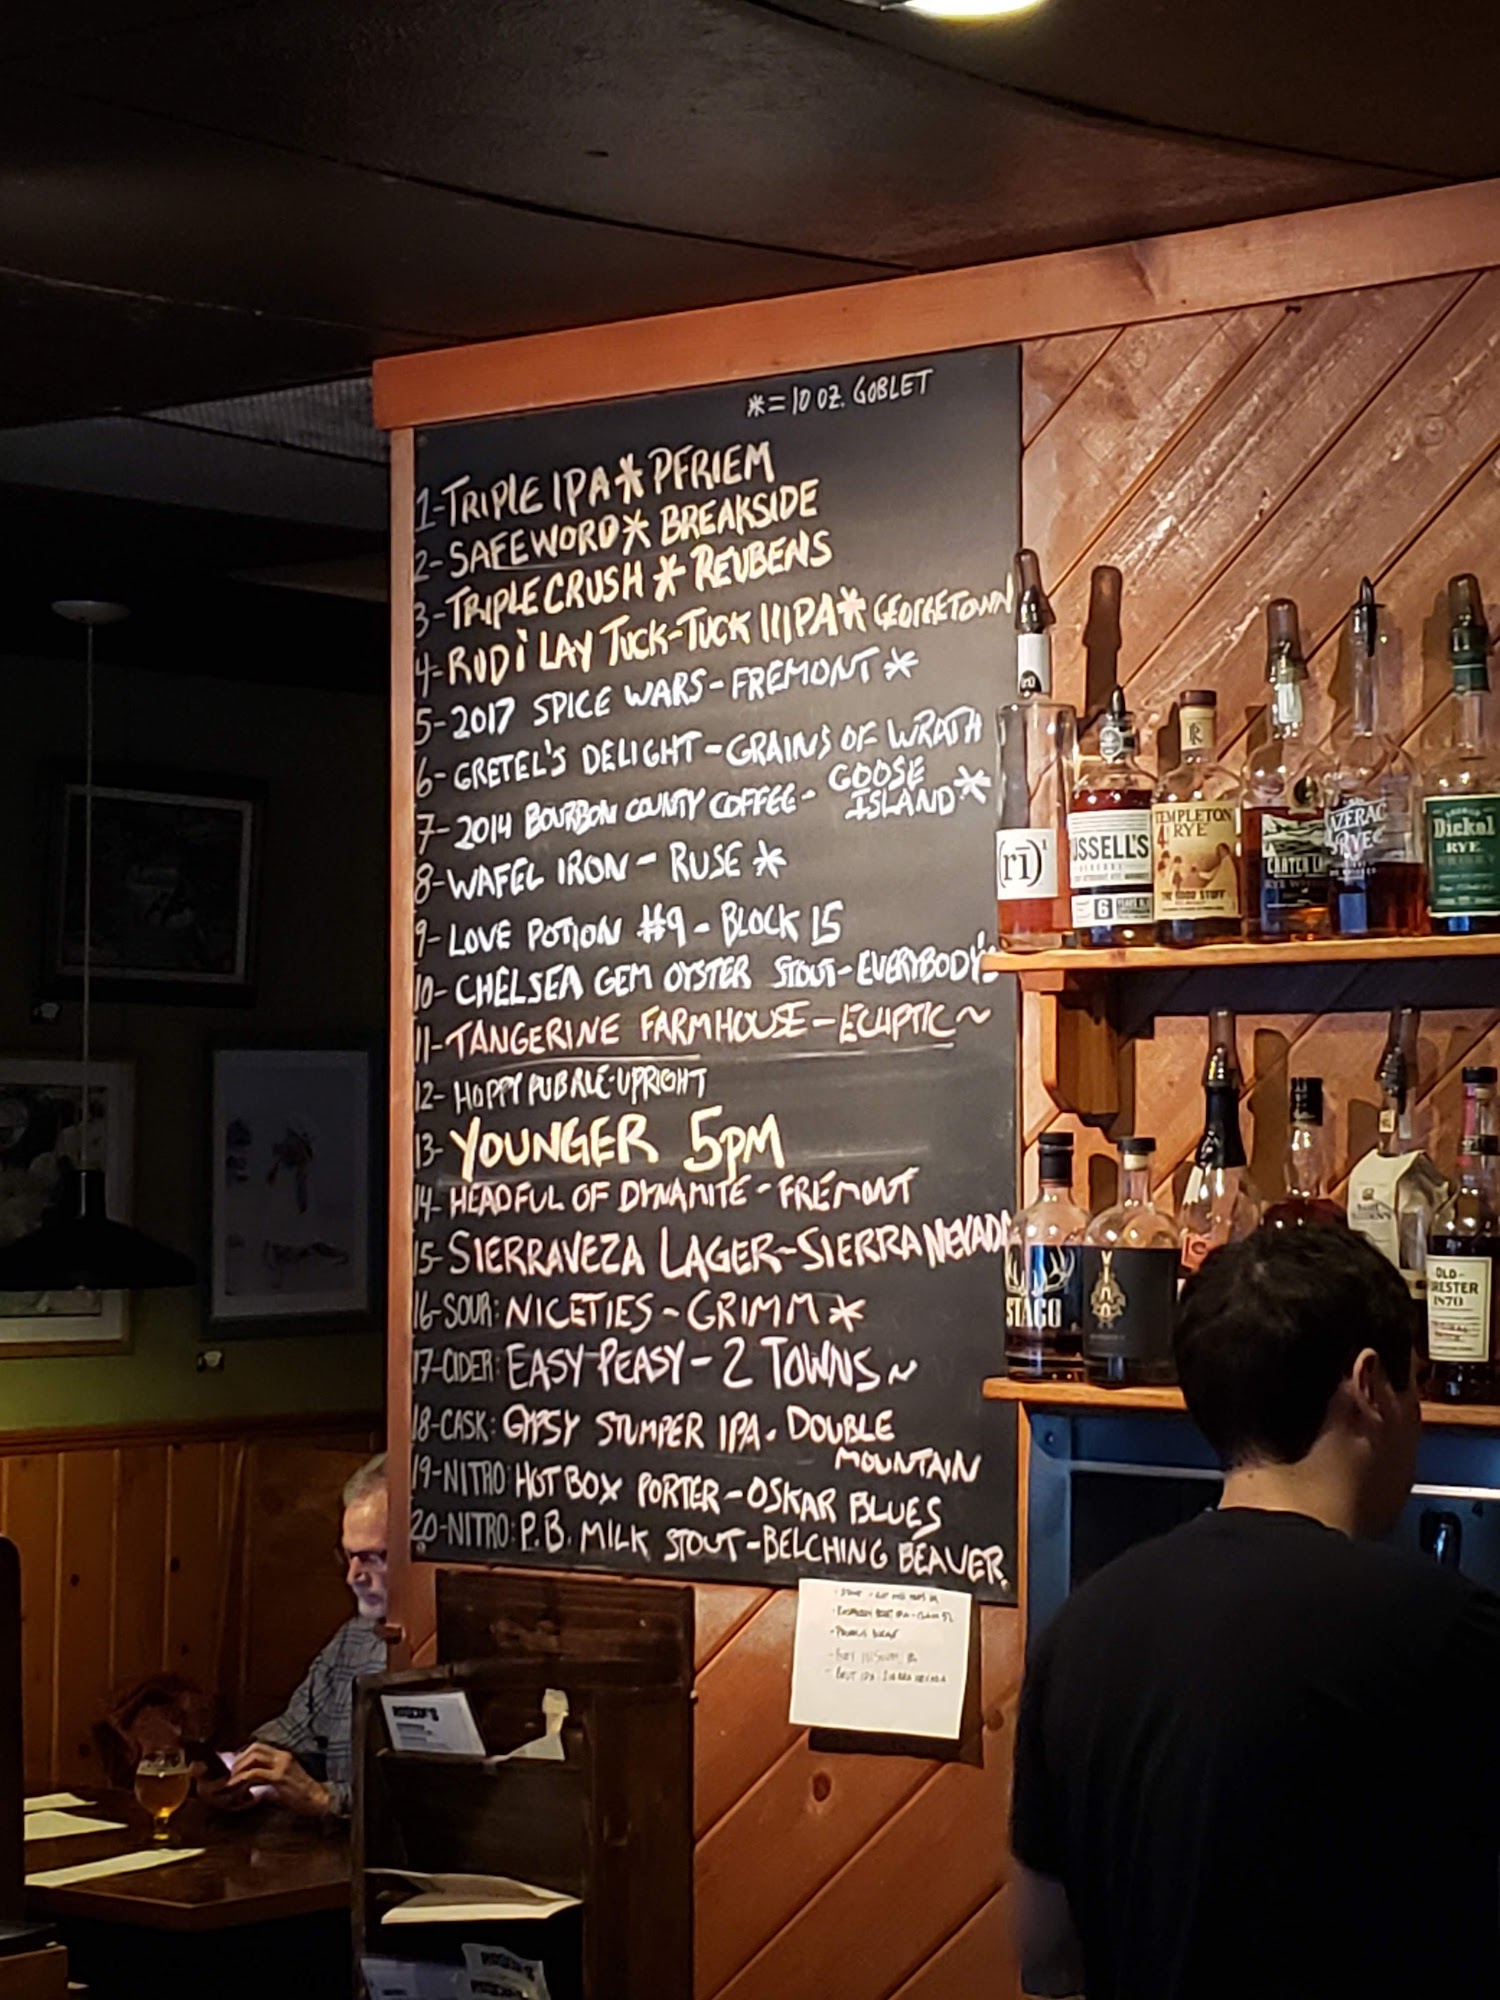 *=10 OZ. GOBLET
1-TRIPLE IPA * PFRIEM
2-SAFEWORD * BREAKSIDE
3-TRIPLE CRUSH * REUBENS
4-RUDI LAY TUCK-TUCK IIIPA * GEORGETOWN
5-2017 SPICE WARS-FREMONT *
6-GRETEL'S DELIGHT-GRAINS OF WRATH
7-2014 BOURBON COUNTY COFFEE- GOOSE
ISLAND *
8-WAFEL IRON - RUSE *
9-LOVE POTION #9 - BLOCK 15
10-CHELSEA GEM OYSTER STOUT-EVERYBODY'S
11-TANGERINE FARMHOUSE-ECLIPTIC~
12-HOPPY PUBALE-UPRIGHT
13-YOUNGER 5PM
14-HEADFUL OF DYNAMITE-FREMONT
15-SIERRAVEZA LAGER-SIERRA NEVADA
16-SOUR: NICETIES-GRIMM *
17-CIDER: EASY PEASY-2 TOWNS~
18-CASK: GYPSY STUMPER IPA. DOUBLE
MOUNTAIN
19-NITRO: HOT BOX PORTER-OSKAR BLUES
20-NITRO: P.B. MILK STOUT-BELCHING BEAVER.
(rī)1
RUSSELL'S
6 YEARS
TEMPLETON
4
RYE
THE GOOD STUFF
RYE
SAZERAC
RYE
Dickel
RYE
STAGG
OLD
FORESTER
1870